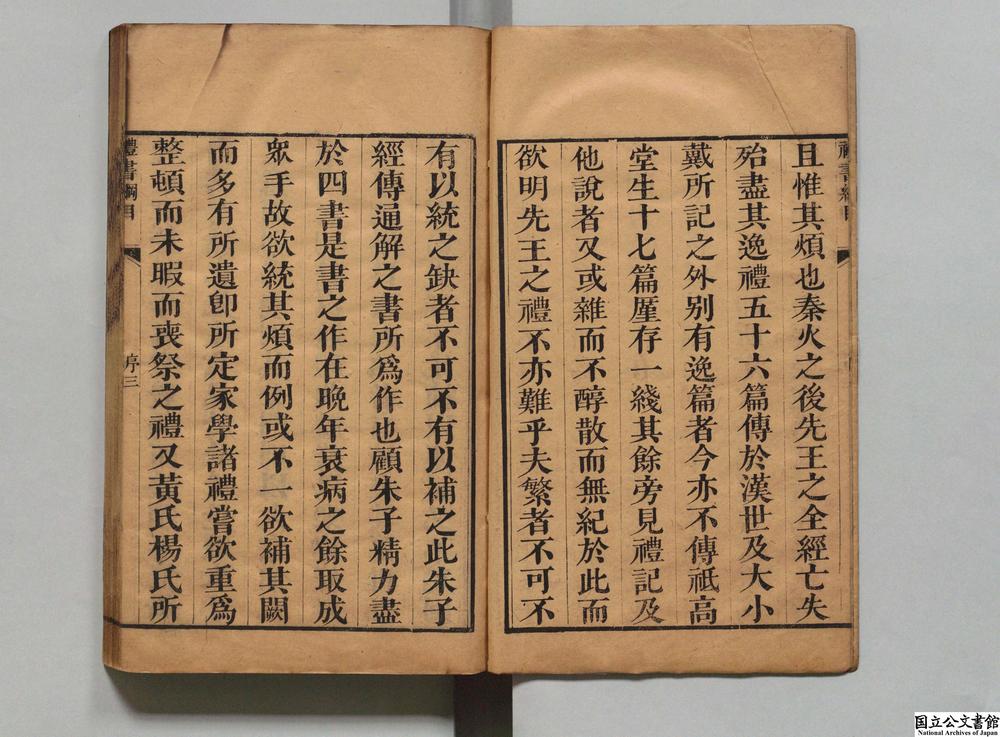 且惟其煩也秦火之後先王之全經亡失
殆盡其逸禮五十六篇傳於漢世及大小
戴所記之外别有逸篇者今亦不傳祇高
堂生十七篇厪存一綫其餘旁見禮記及
他說者又或雜而不醇散而無紀於此而
欲明先王之禮不亦難乎夫繁者不可不
有以統之缺者不可不有以補之此朱子
經傳通解之書所爲作也顧朱子精力盡
於四書是書之作在晩年衰病之餘取成
衆手故欲統其煩而例或不一欲補其闕
而多有所遺卽所定家學諸禮嘗欲重爲
整頓而未暇而喪祭之禮又黃氏楊氏所
禮書綱目
序三
国立公文書館
National Archives of Japan